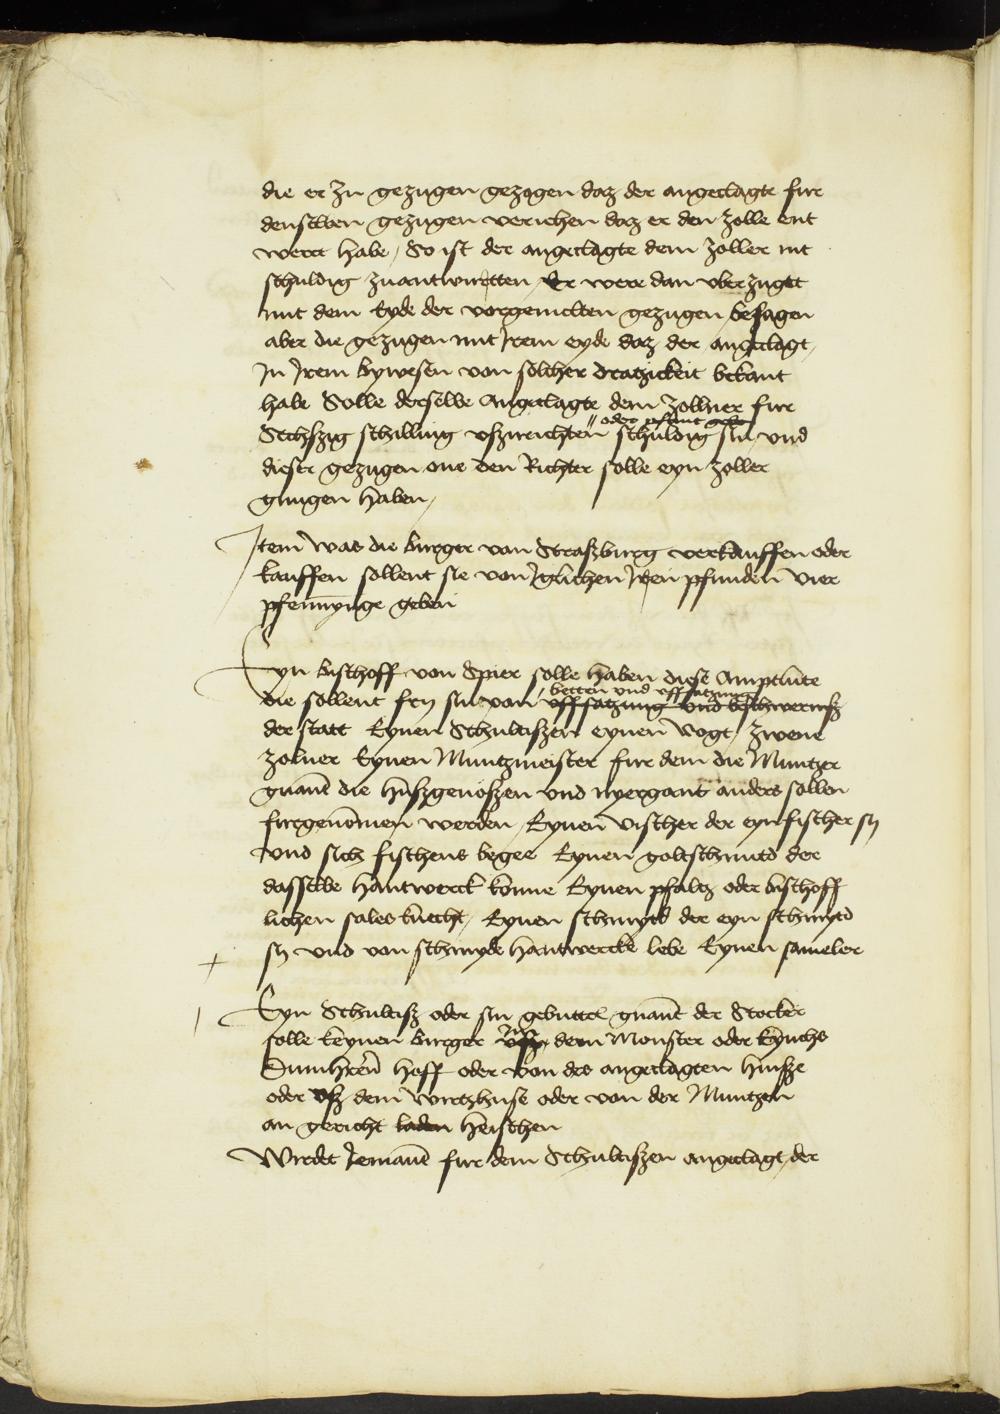 die er zu gezugen gezogen daz der angeclagte fure
denselben gezugen verichen daz er den zolle ent
wert habe / So ist der angeclagte dem zoller nit
schuldig zuantwurtten / Er were dan vberzugtt
mit dem Eyde der vorgemelten gezugen / besagen
aber die gezugen mit Irem eyde daz der angeclagt,
In Irem bywesen von solcher bekant
habe Solle derselbe Angeclagte dem zollner fur
oder pfant geben
Sechszig schilling vszurichten schuldig sin, vnd
dieser gezugen one den Richter solle eyn zoller
gnugen haben,
Item was die burger von Straszburg verkauffen oder
kauffen sollent sie von Iglichen Iren pfunden vier
pfennynge geben
Eyn bischoff von Spier solle haben diese Amptlute
betten und vffsatzung
die sollent fry sin von vffsatzung vnd beschwernisz
der statt Eynen Schultiszen eynen vogt, zwene
zolner Eynen Muntzmeister fur dem die Muntzer
gnant die huszgenoszen vnd nyergant anders sollen
furgenomen werden, Eynen vischer der eyn fischer sy
vnd sich fischens begee Eynen goltschmid der
dasselbe hantwerck konne Eynen pfaltz oder bischoff
lichen sales knecht, Eynen schmydt der eyn schmydt
sy vnd von schmyde hantwercke lebe Eynen sameler
Eyn Schultisz oder sin gebuttel gnant der Stocker
solle keynen burger vsz dem Monster oder Eynichs
Dumheren hoff oder von des angeclagten husze
oder vsz dem wirtzhuse oder von der Muntzen
an gericht laden heischen
Wirdet Iemant fur dem Schultiszen angeclagt, der